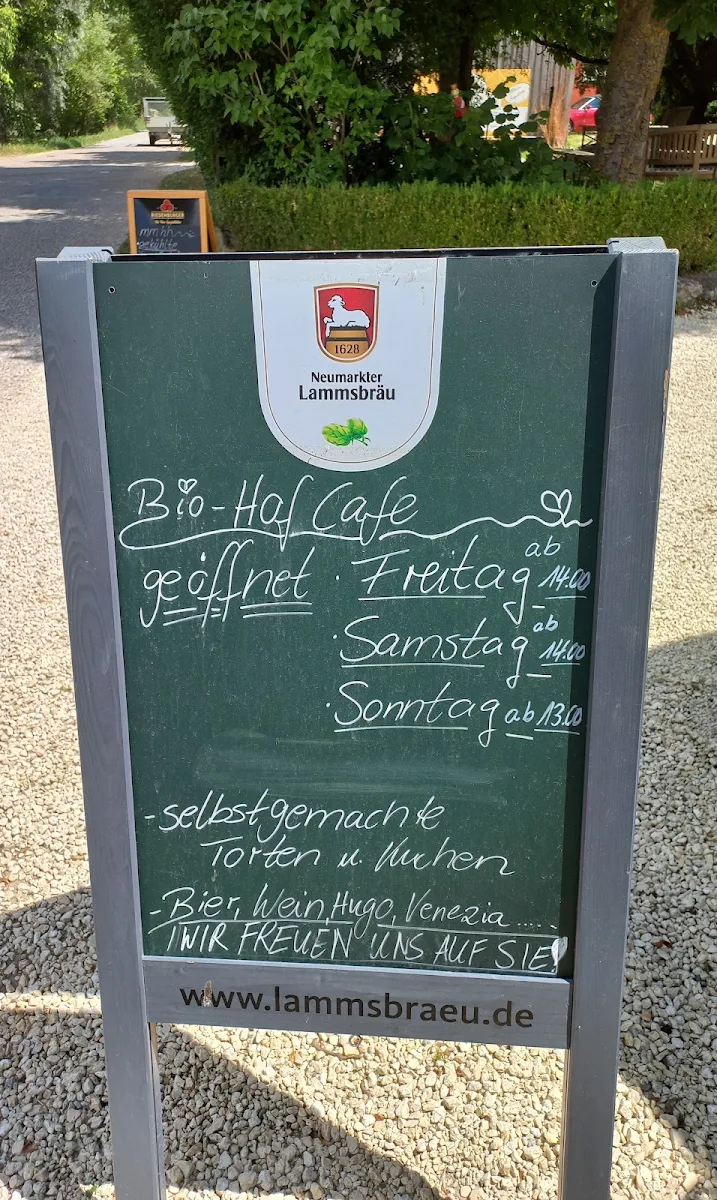 RIEDENBURGER
mmhh
gekühlte
1628
Neumarkter
Lammsbräu
Bio-Hof Cafe
geöffnet · Freitag ab 14.00
· Samstag ab 14.00
· Sonntag ab 13.00
- selbstgemachte
Torten u. Kuchen
- Bier, Wein, Hugo, Venezia.....
WIR FREUEN UNS AUF SIE!
www.lammsbraeu.de